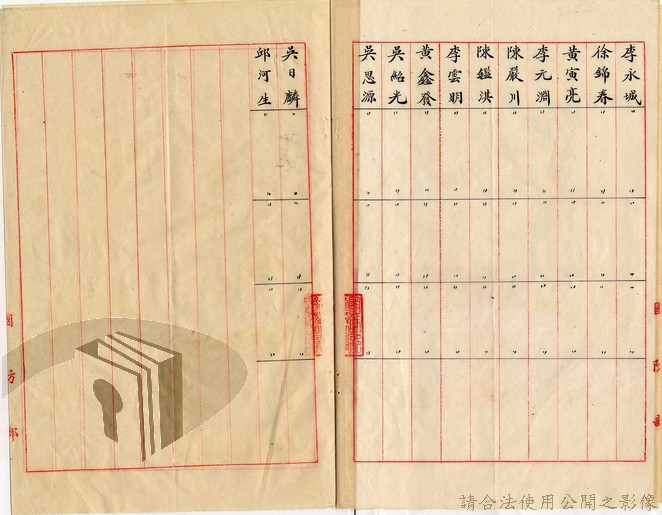 李永城 〃 〃 〃 〃 〃 〃 〃
徐錦春 〃 〃 〃 〃 〃 〃 〃
黃寅亮 〃 〃 〃 〃 〃 〃 〃
李元淵 〃 〃 〃 〃 〃 〃 〃
陳嚴川 〃 〃 〃 〃 〃 〃 〃
陳鑑淇 〃 〃 〃 〃 〃 〃 〃
李雲明 〃 〃 〃 〃 〃 〃 〃
黃鑫發 〃 〃 〃 〃 〃 〃 〃
吳紹光 〃 〃 〃 〃 〃 〃 〃
吳思源 〃 〃 〃 〃 〃 〃 〃
吳日麟 〃 〃 〃 〃 〃 〃 〃
邱河生 〃 〃 〃 〃 〃 〃 〃
國防部
請合法使用公開之影像